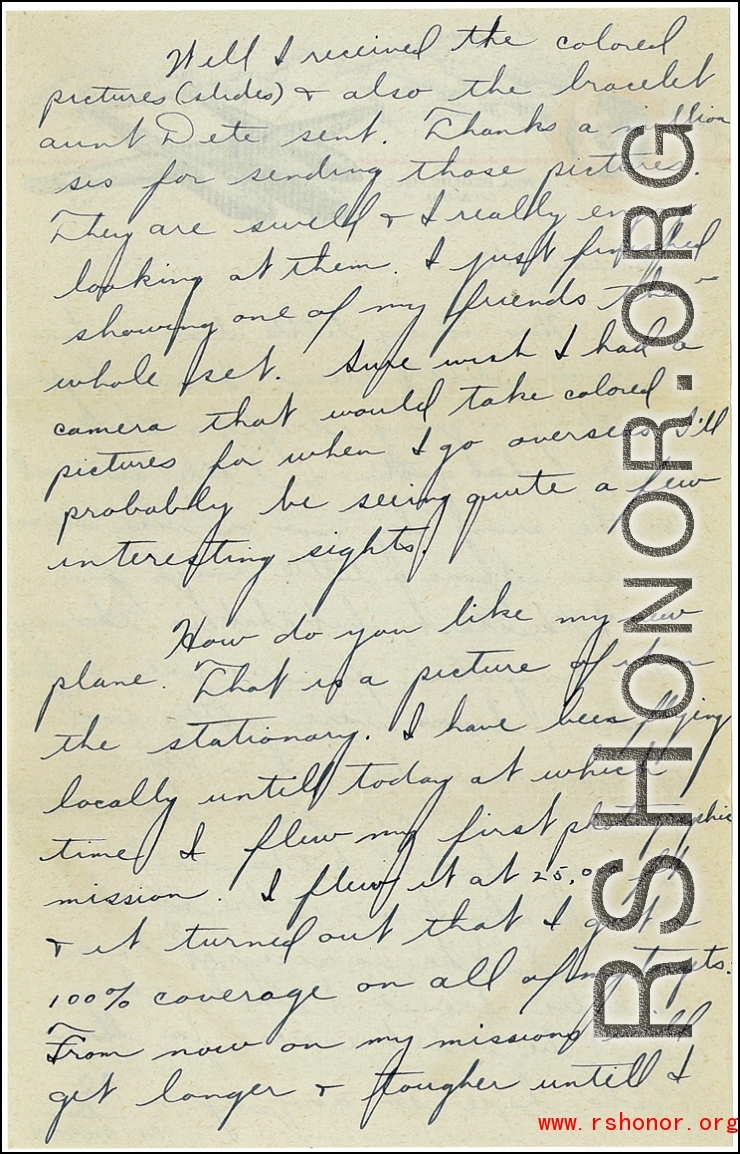 Well I received the colored
pictures (slides) & also the bracelet
aunt Dete sent. Thanks a million
sis for sending those pictures.
They are swell & I really enjoy
looking at them. I just finished
showing one of my friends the
whole set. Sure wish I had a
camera that would take colored
pictures for when I go overseas I'll
probably be seeing quite a few
interesting sights.
How do you like my new
plane. That is a picture of it on
the stationary. I have been flying
locally untill today at which
time I flew my first photographic
mission. I flew it at 25,000 ft
& it turned out that I got
100% coverage on all of my targets.
From now on my missions will
get longer & tougher untill I
RSHONOR.ORG
www.rshonor.org